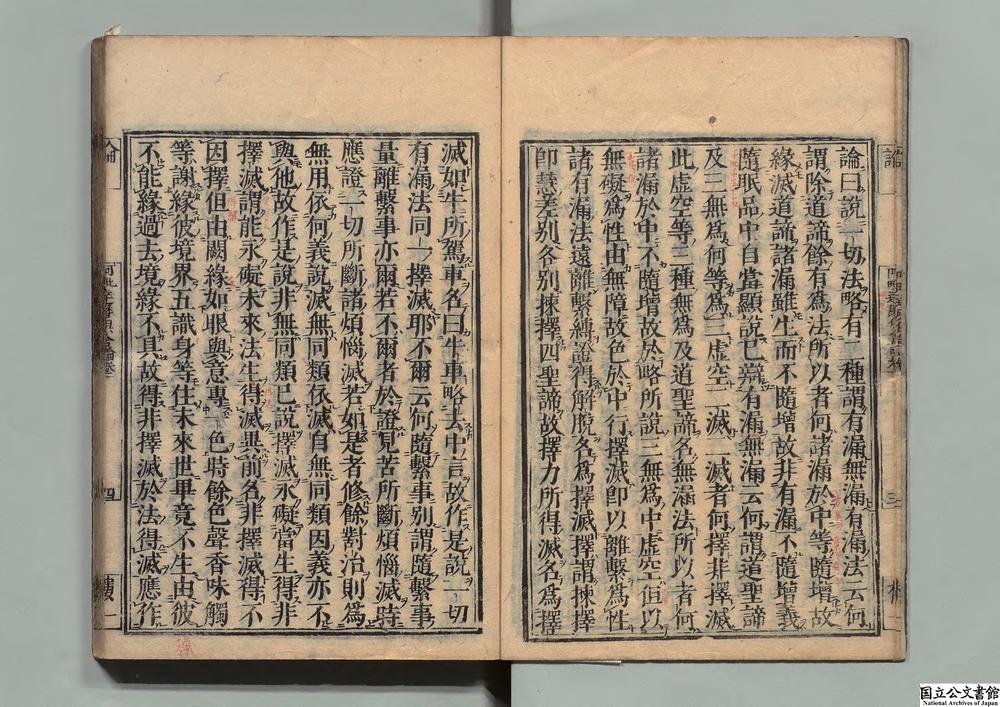 論曰說一切法略有二種謂有漏無漏有漏法云何
謂除道諦餘有爲法所以者何諸漏於中等隨增故
緣滅道諦諸漏雖生而不隨增故非有漏不隨增義
隨眠品中自當顯說已辯有漏無漏云何謂道聖諦
及三無爲何等爲三虛空二滅二滅者何擇非擇滅
此虛空等三種無爲及道聖諦名無漏法所以者何
諸漏於中不隨增故於略所說三無爲中虛空但以
無礙爲性由無障故色於中行擇滅卽以離繫爲性
諸有漏法遠離繫縛證得解脫名爲擇滅擇謂揀擇
卽慧差別各別揀擇四聖諦故擇力所得滅名爲擇
滅如牛所駕車名曰牛車略去中言故作是說一切
有漏法同一擇滅耶不爾云何隨繫事別謂隨繫事
量離繫事亦爾若不爾者於證見苦所斷煩惱滅時
應證一切所斷諸煩惱滅若如是者修餘對治則爲
無用依何義說滅無同類依滅自無同類因義亦不
與他故作是說非無同類已說擇滅永礙當生得非
擇滅謂能永礙未來法生得滅異前名非擇滅得不
因擇但由闕緣如眼與意專一色時餘色聲香味觸
等謝緣彼境界五識身等住未來世畢竟不生由彼
不能緣過去境緣不具故得非擇滅於法得滅應作
論
三
四
国立公文書館
National Archives of Japan